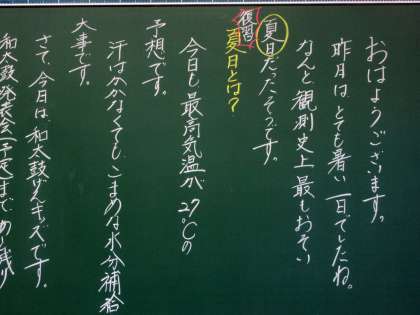 おはようございます。
昨日はとても暑い一日でしたね。
なんと観測史上最もおそい
夏日だったそうです。
復習
夏日とは？
今日も最高気温が27℃の
予想です。
汗はかかなくても、こまめな水分補給
大事です。
さて、今日は、和太鼓げんキッズです。
和太鼓発表会(予定)まで、あと残り